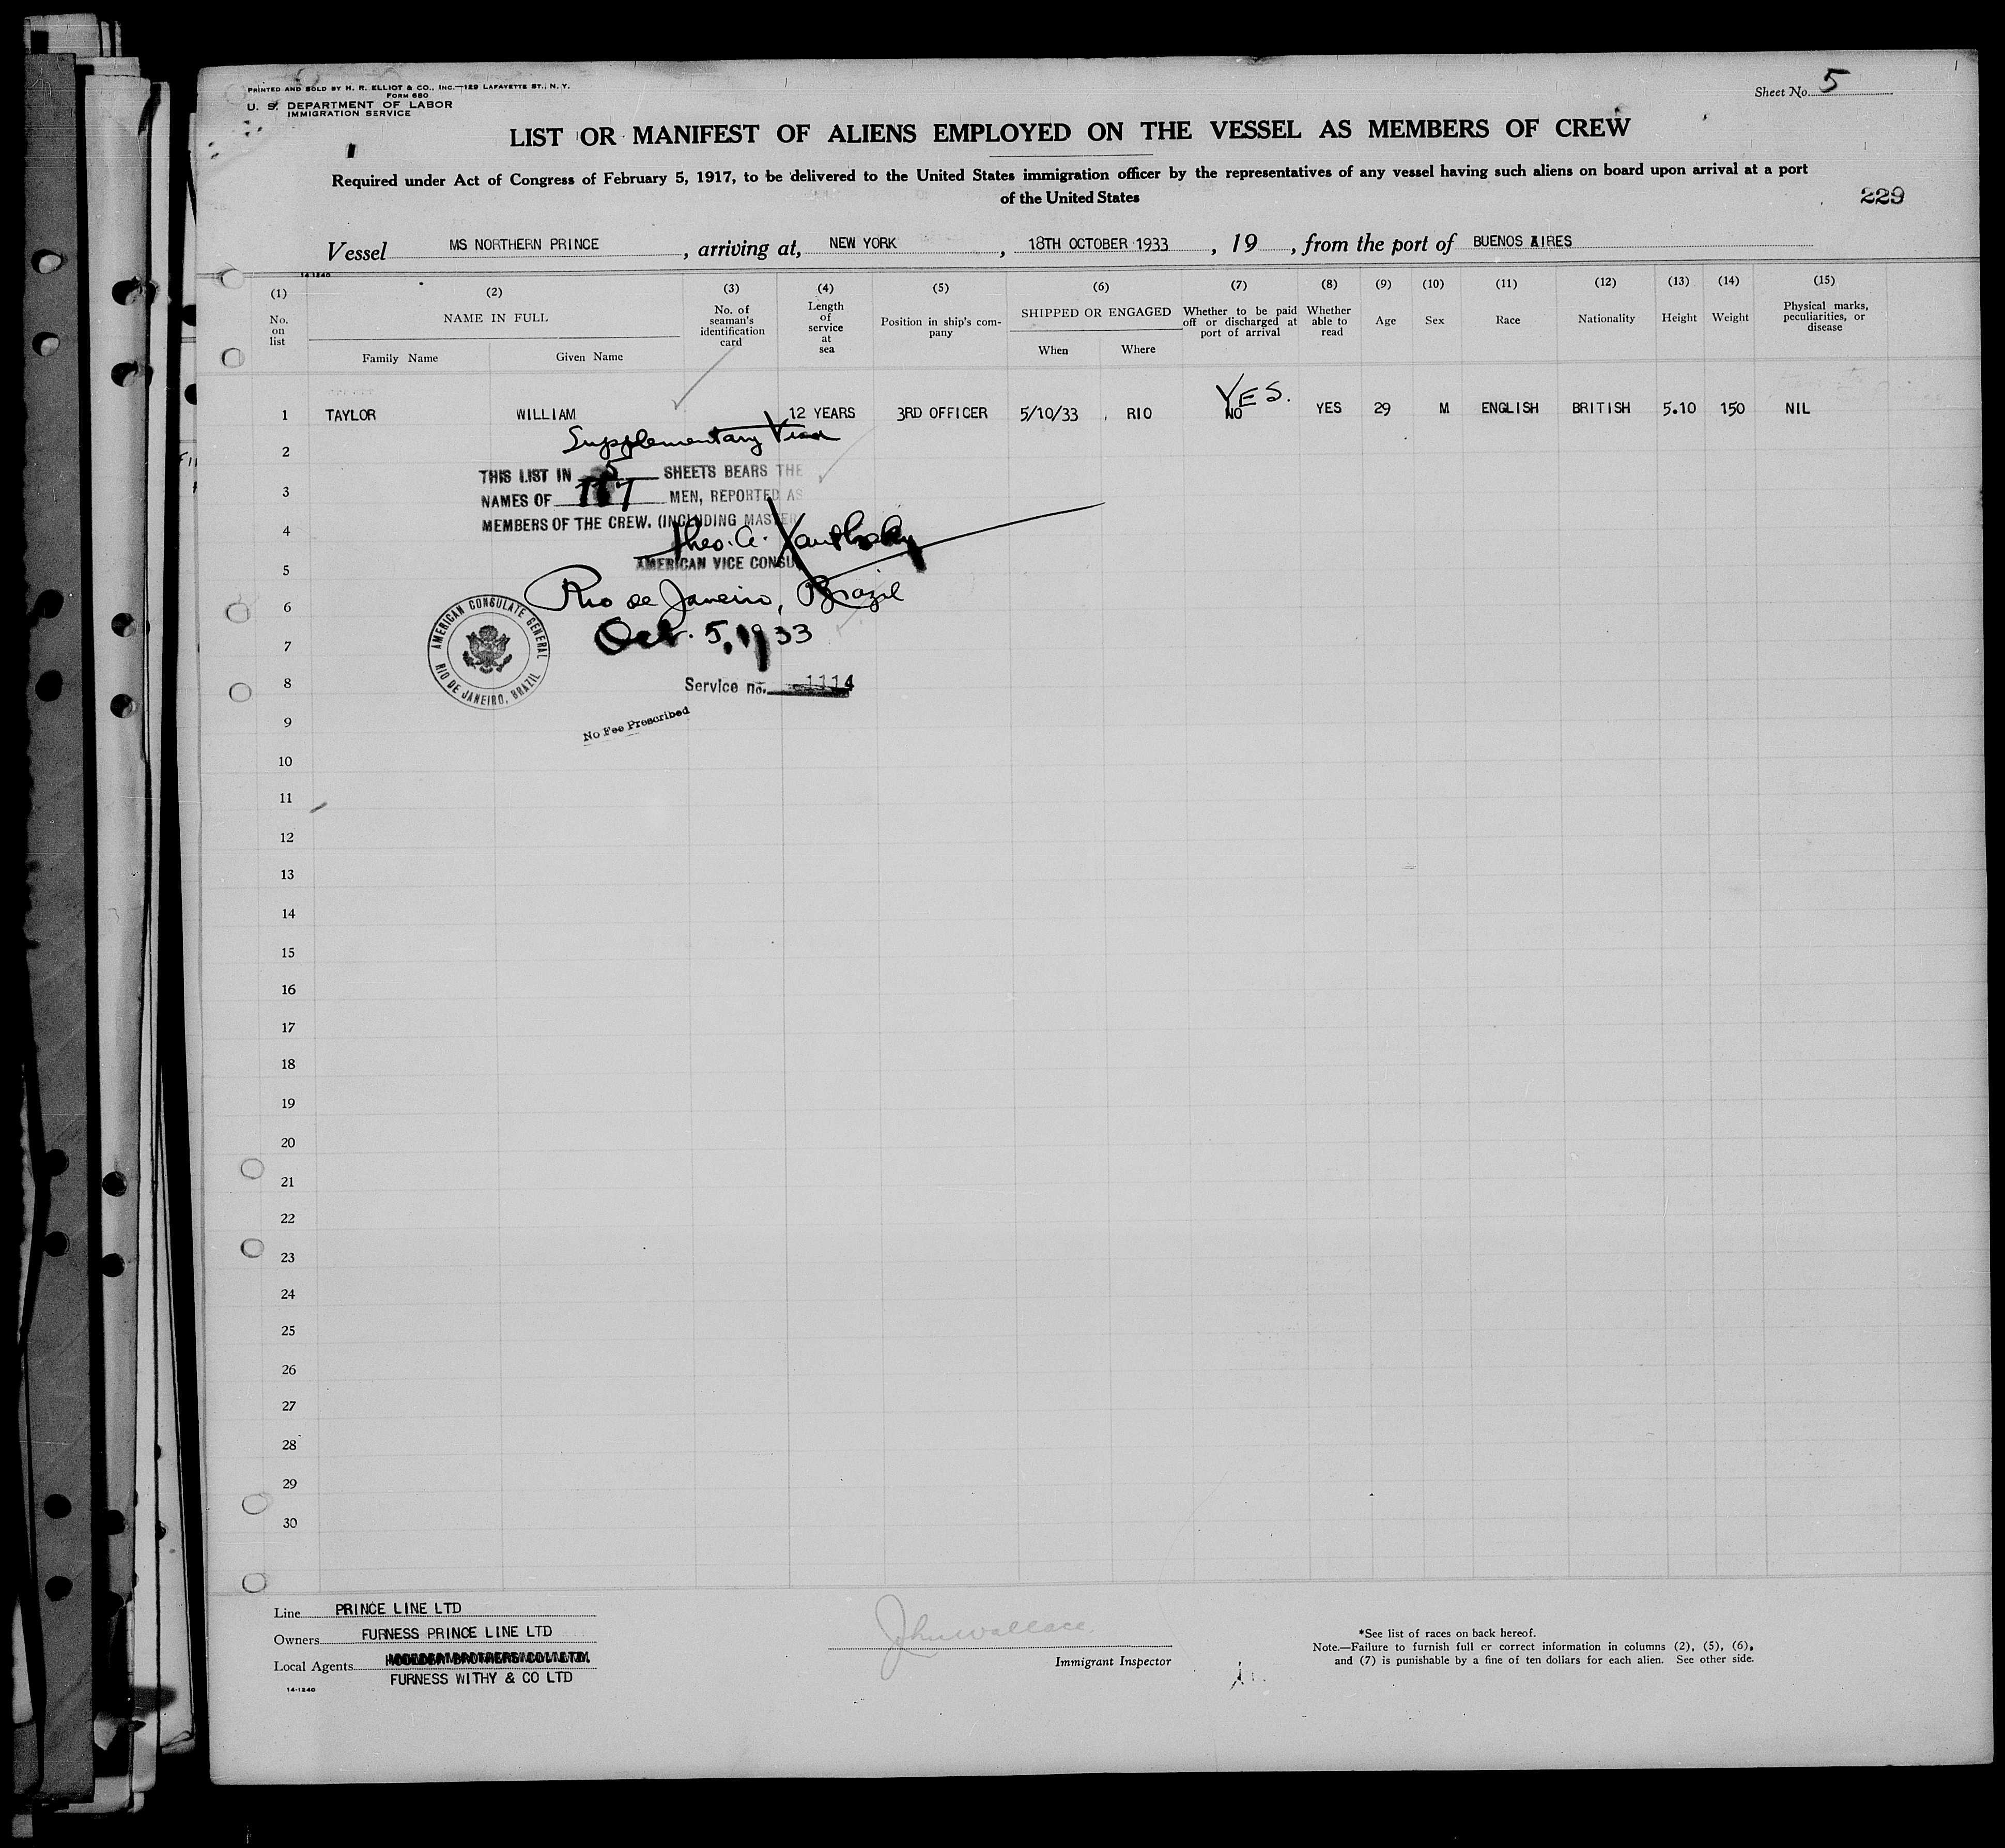 PRINTED AND SOLD BY H. R. ELLIOT & CO., INC.—129 LAFAYETTE ST., N. Y.
FORM 680
U. S. DEPARTMENT OF LABOR
IMMIGRATION SERVICE
Sheet No. 5
LIST OR MANIFEST OF ALIENS EMPLOYED ON THE VESSEL AS MEMBERS OF CREW
Required under Act of Congress of February 5, 1917, to be delivered to the United States immigration officer by the representatives of any vessel having such aliens on board upon arrival at a port
of the United States
229
Vessel MS NORTHERN PRINCE, arriving at, NEW YORK, 18TH OCTOBER 1933, 19, from the port of BUENOS AIRES
14-1240
(1) (2) (3) (4) (5) (6) (7) (8) (9) (10) (11) (12) (13) (14) (15)
No. on list
NAME IN FULL
Family Name Given Name
No. of seaman's identification card
Length of service at sea
Position in ship's company
SHIPPED OR ENGAGED
When Where
Whether to be paid off or discharged at port of arrival
Whether able to read
Age
Sex
Race
Nationality
Height
Weight
Physical marks, peculiarities, or disease
YES.
1 TAYLOR WILLIAM 12 YEARS 3RD OFFICER 5/10/33 RIO NO YES 29 M ENGLISH BRITISH 5.10 150 NIL
Supplementary Visa
2
THIS LIST IN 5 SHEETS BEARS THE
3
NAMES OF MEN, REPORTED AS
MEMBERS OF THE CREW. (INCLUDING MASTER
4
Theo. A.
AMERICAN VICE CONSUL
5
Rio de Janeiro, Brazil
6
Oct. 5, 1933
7
AMERICAN CONSULATE GENERAL
RIO DE JANEIRO, BRAZIL
8
Service no. 1114
No Fee Prescribed
9
10
11
12
13
14
15
16
17
18
19
20
21
22
23
24
25
26
27
28
29
30
Line PRINCE LINE LTD
Owners FURNESS PRINCE LINE LTD
Local Agents
FURNESS WITHY & CO LTD
14-1240
John Wallace
Immigrant Inspector
*See list of races on back hereof.
Note.—Failure to furnish full or correct information in columns (2), (5), (6),
and (7) is punishable by a fine of ten dollars for each alien. See other side.